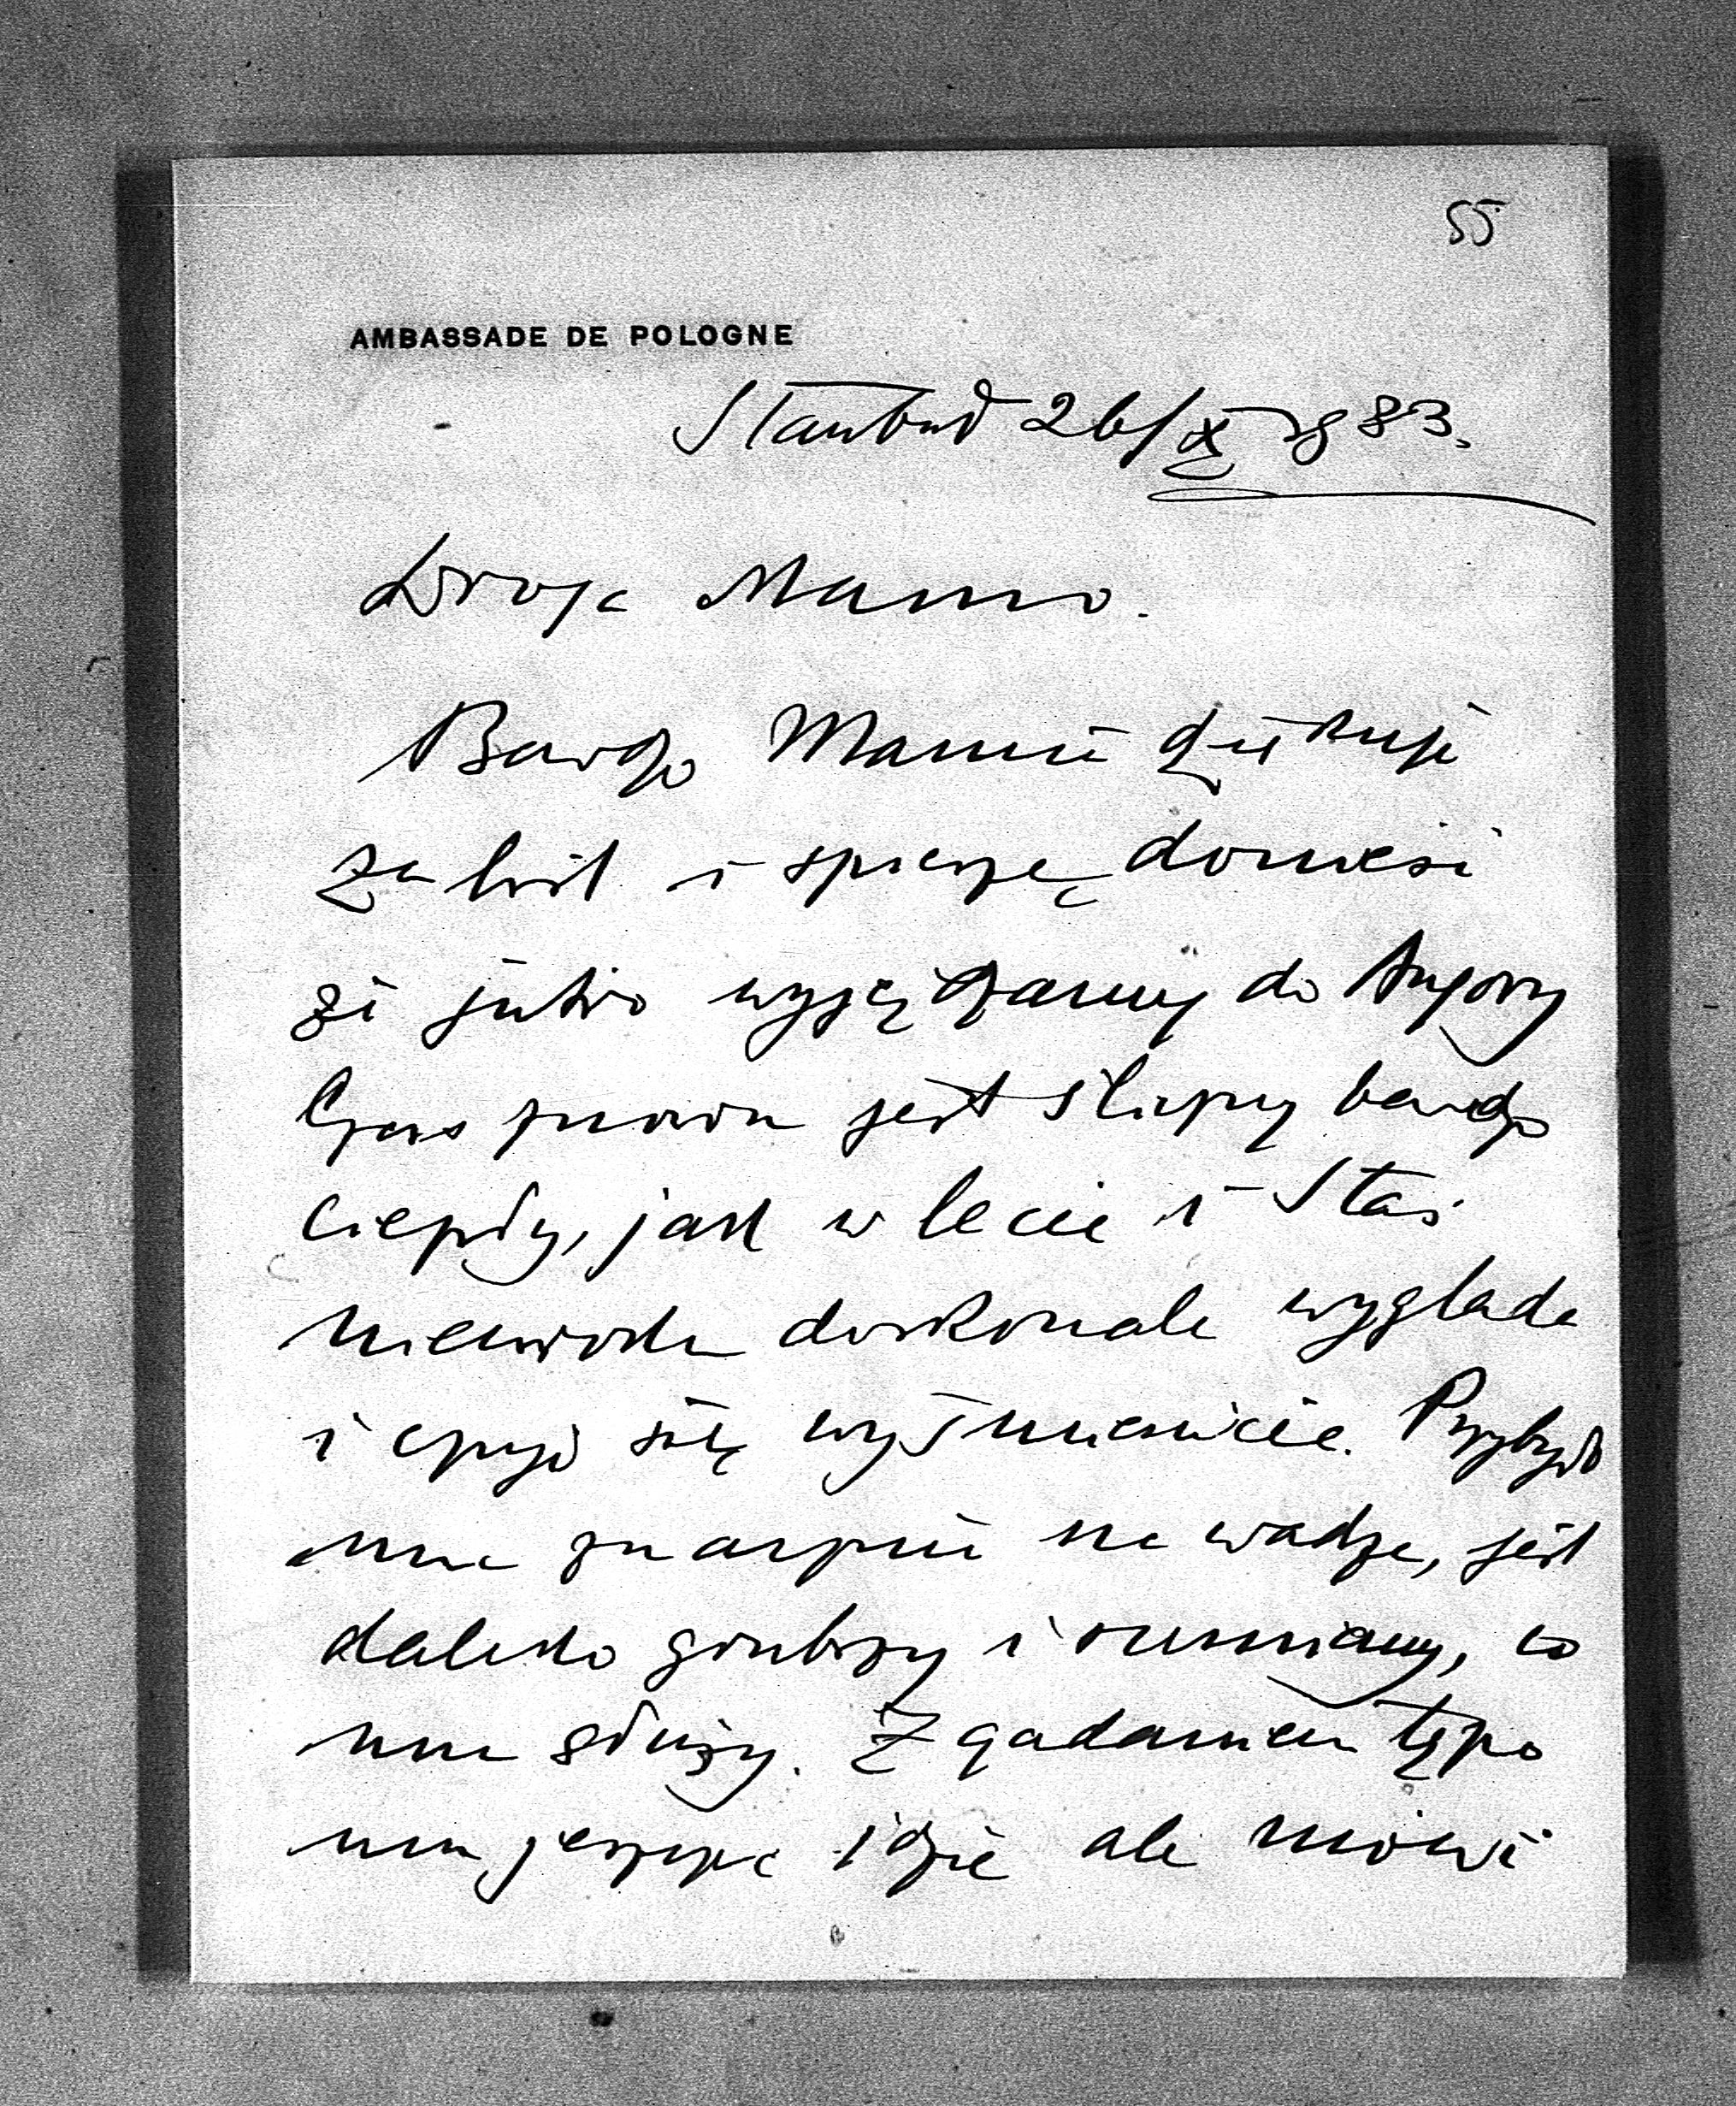 55
AMBASSADE DE POLOGNE
Stambuł 26/X
Droga Mamo.
Bardzo Mamie dziękuję
za list i spieszę donieść
że jutro wyjeżdżamy do Angory
Czas znowu jest śliczny bardzo
ciepły, jak w lecie i Staś
niewoda doskonale wygląda
i czuje się wyśmienicie. Przybyło
mu znacznie na wadze, jest
daleko grubszy i rumiany, co
mu służy. Z gadaniem tępo
mu jeszcze idzie ale mówi